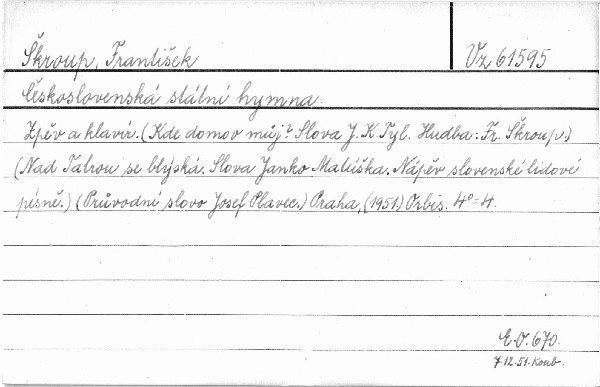 Škroup, František
Vz 61595
Československá státní hymna.
Zpěv a klavír. (Kde domov můj? Slova J. K. Tyl. Hudba: Fr. Škroup.)
(Nad Tatrou se blýská. Slova Janko Matúška. Nápěv slovenské lidové
písně.) (Průvodní slovo Josef Plavec.) Praha, (1951) Orbis. 4°-4.
E.O. 670.
7.12.51. Koub.